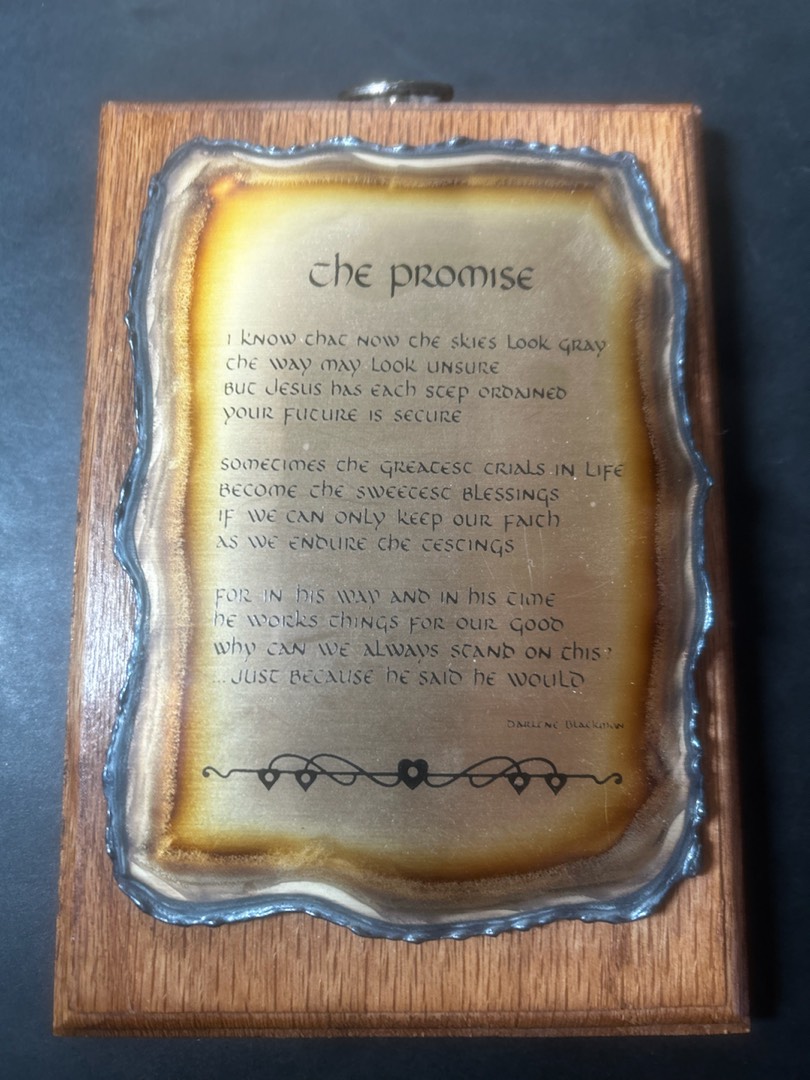 The Promise
I know that now the skies look gray
The way may look unsure
But Jesus has each step ordained
Your future is secure
Sometimes the greatest trials in life
Become the sweetest blessings
If we can only keep our faith
As we endure the testings
For in his way and in his time
He works things for our good
Why can we always stand on this?
...Just because he said he would
Darlene Blackmon